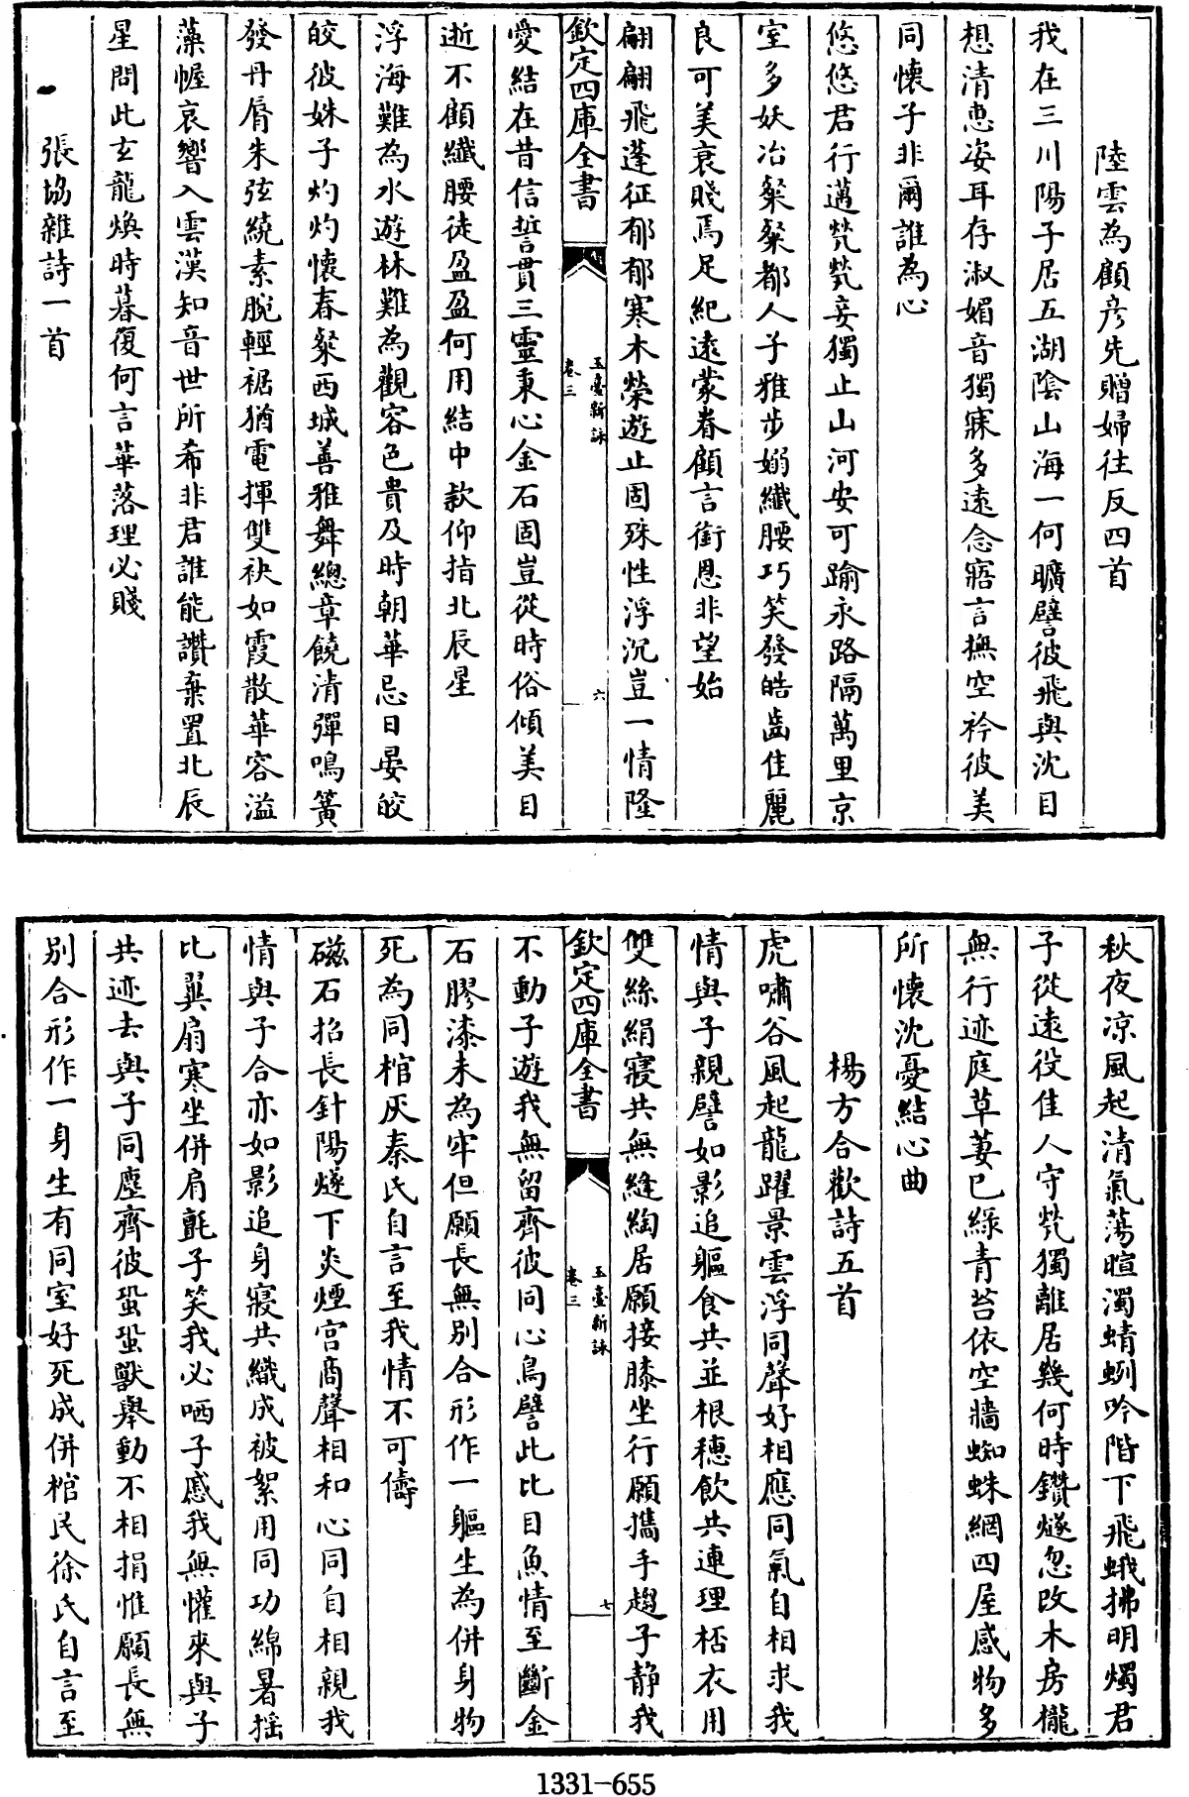 陸雲為顧彦先贈婦往反四首
我在三川陽子居五湖陰山海一何曠譬彼飛與沈目
想清惠姿耳存淑媚音獨寐多遠念寤言撫空衿彼美
同懷子非爾誰為心
悠悠君行邁煢煢妾獨止山河安可踰永路隔萬里京
室多妖冶粲粲都人子雅步嫋纖腰巧笑發皓齒佳麗
良可美衰賤焉足紀遠蒙眷顧言銜恩非望始
翩翩飛蓬征郁郁寒木榮遊止固殊性浮沉豈一情隆
欽定四庫全書
玉臺新詠
卷三
六
愛結在昔信誓貫三靈秉心金石固豈從時俗傾美目
逝不顧纖腰徒盈盈何用結中款仰指北辰星
浮海難為水遊林難為觀容色貴及時朝華忌日晏皎
皎彼姝子灼灼懷春粲西城善雅舞總章饒清彈鳴簧
發丹脣朱弦繞素腕輕裾猶電揮雙袂如霞散華容溢
藻幄哀響入雲漢知音世所希非君誰能讚棄置北辰
星問此玄龍煥時暮復何言華落理必賤
張協雜詩一首
秋夜凉風起清氣蕩暄濁蜻蛚吟階下飛蛾拂明燭君
子從遠役佳人守煢獨離居幾何時鑽燧忽改木房櫳
無行迹庭草萋已綠青苔依空牆蜘蛛網四屋感物多
所懷沈憂結心曲
楊方合歡詩五首
虎嘯谷風起龍躍景雲浮同聲好相應同氣自相求我
情與子親譬如影追軀食共並根穗飲共連理桮衣用
雙絲絹寢共無縫裯居願接膝坐行願攜手趨子静我
欽定四庫全書
玉臺新詠
卷三
七
不動子遊我無留齊彼同心鳥譬此比目魚情至斷金
石膠漆未為牢但願長無別合形作一軀生為併身物
死為同棺灰秦氏自言至我情不可儔
磁石招長針陽燧下炎煙宫商聲相和心同自相親我
情與子合亦如影追身寢共織成被絮用同功綿暑揺
比翼扇寒坐併肩氈子笑我必哂子慼我無懽來與子
共迹去與子同塵齊彼蛩蛩獸舉動不相捐惟願長無
别合形作一身生有同室好死成併棺民徐氏自言至
1331-655